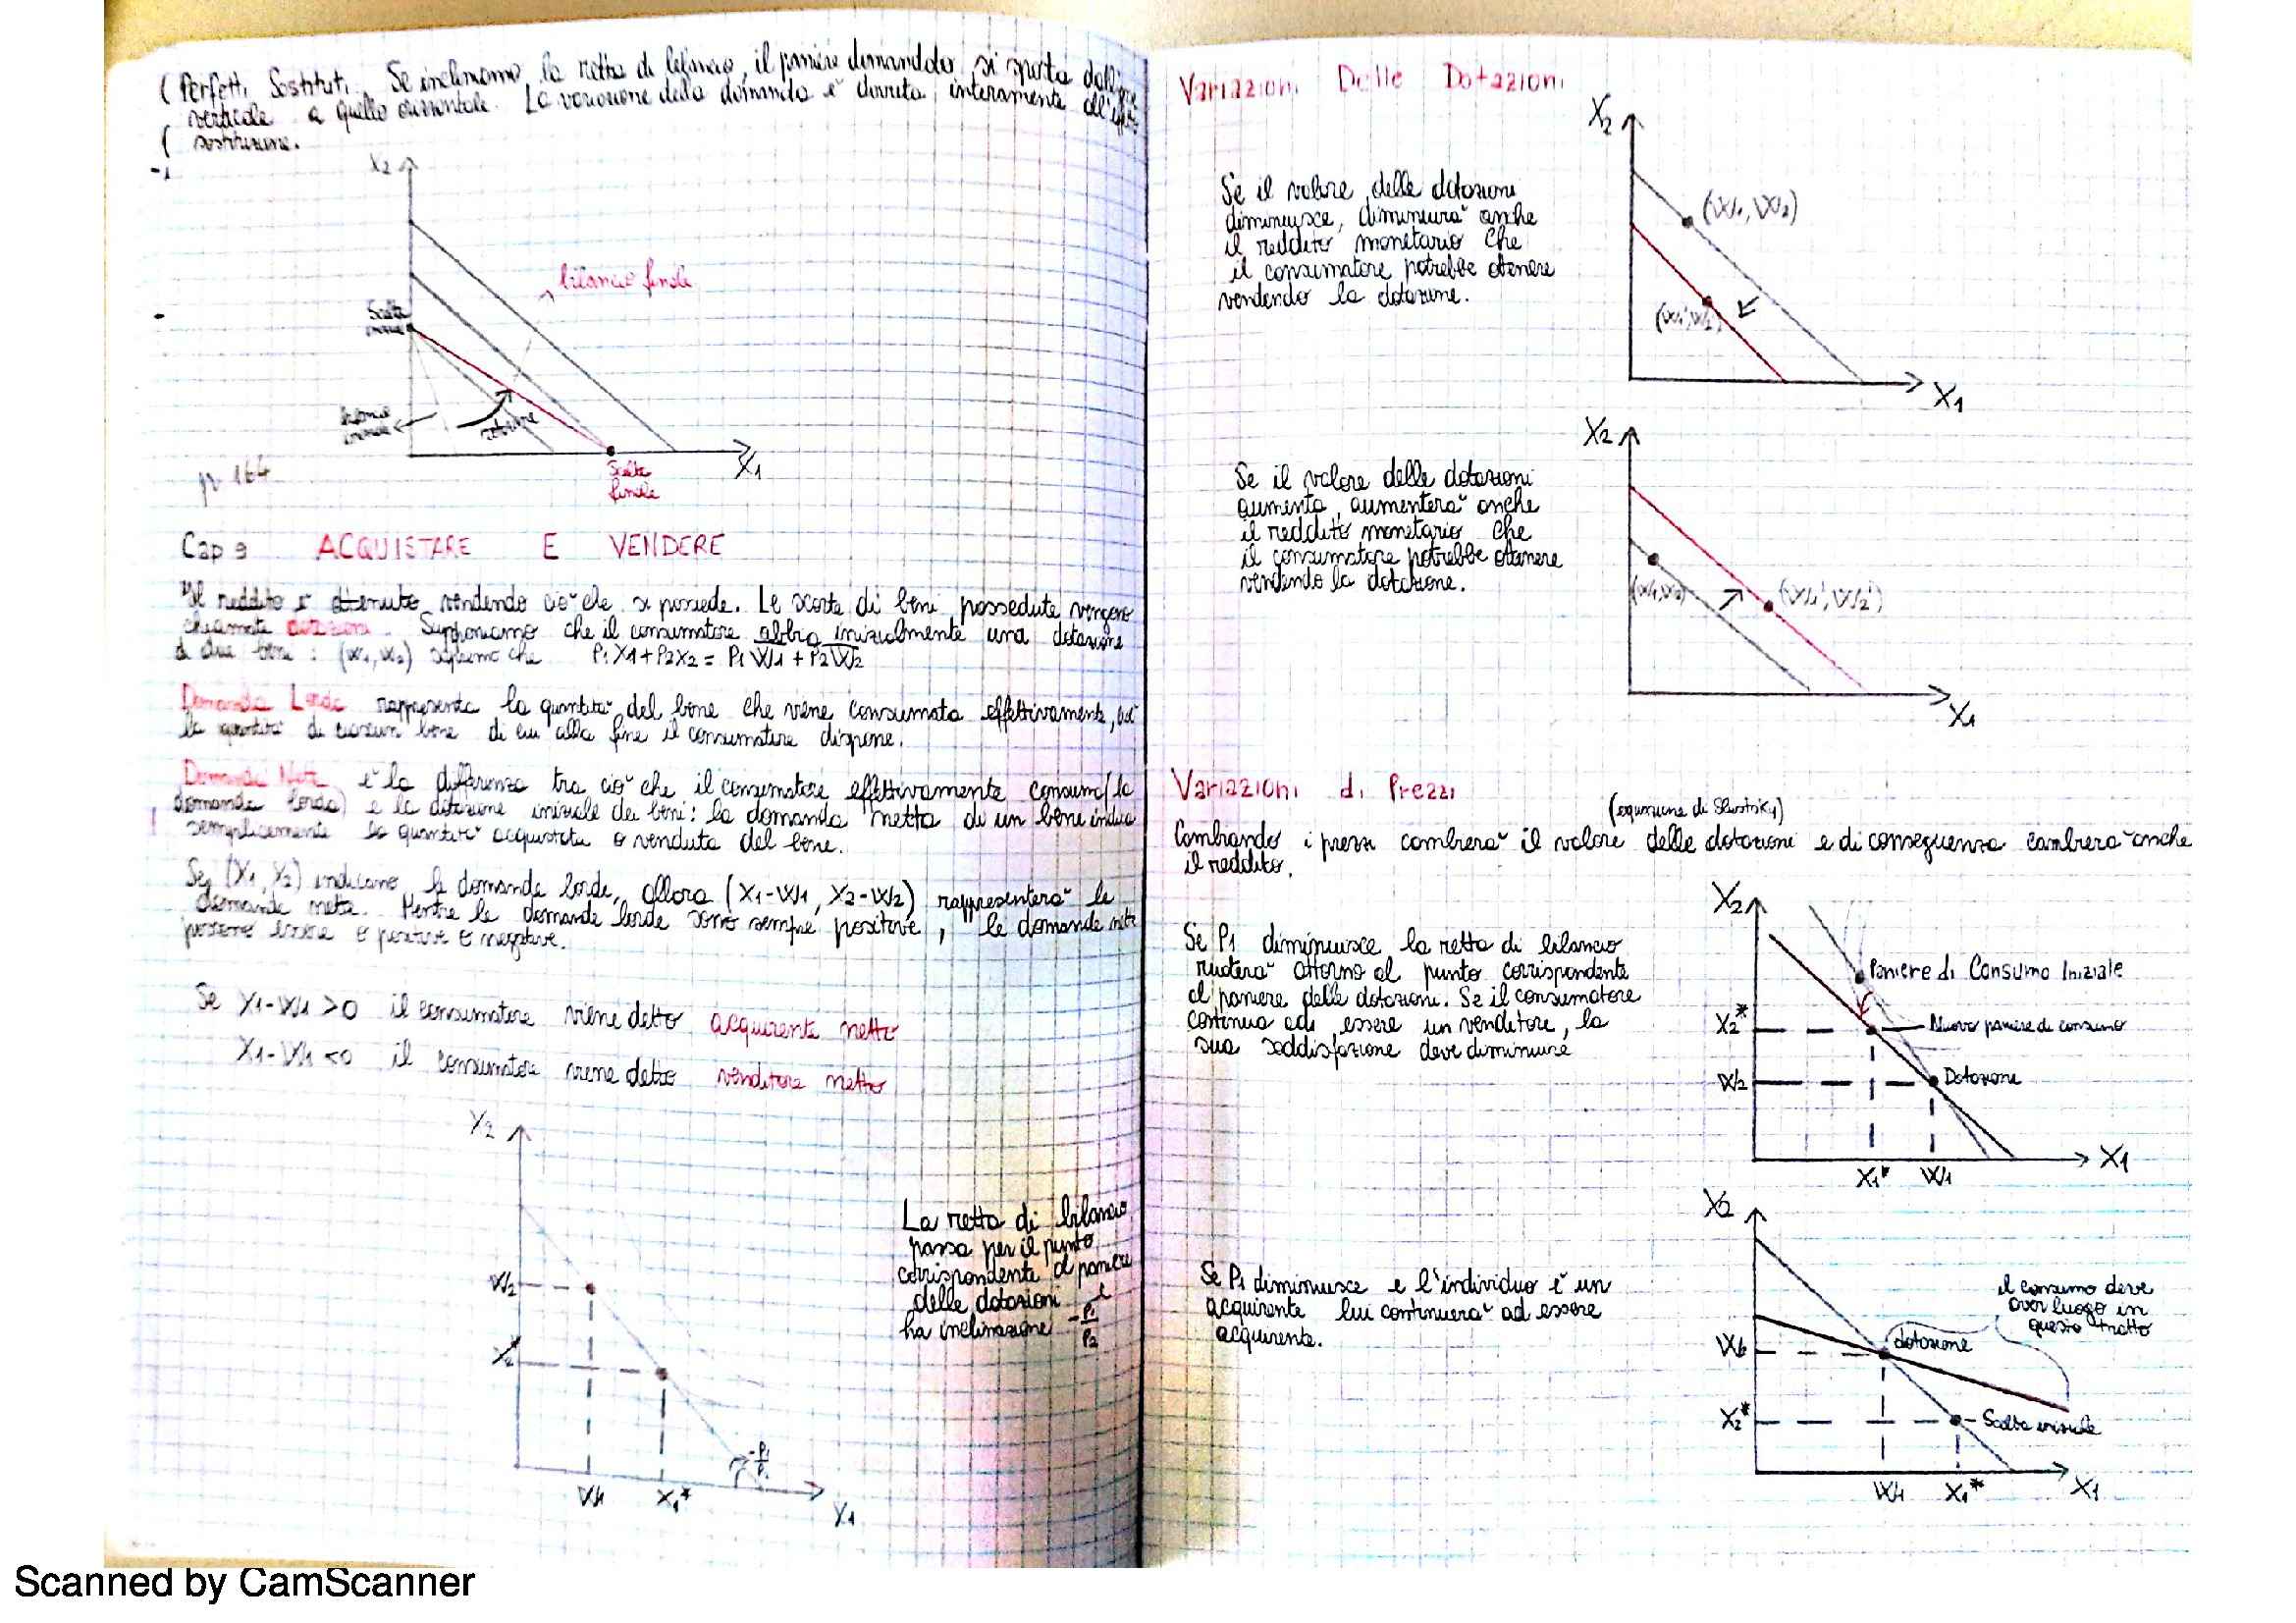 (Perfetti Sostituti. Se incliniamo la retta di bilancio, il paniere domandato si sposta dall'
verticale a quello orizzontale. La variazione della domanda è dovuta interamente all'effetto
( sostituzione.
X2
bilancio finale
Scelta
rotazione
X1
Scelta
finale
p. 164
Cap 9 ACQUISTARE E VENDERE
Il reddito è ottenuto vendendo ciò che si possiede. Le scorte di beni possedute vengono
chiamate dotazioni. Supponiamo che il consumatore abbia inizialmente una dotazione
di due beni: (W1, W2) sappiamo che P1X1+P2X2 = P1W1+P2W2
Domanda Lorda rappresenta la quantità del bene che viene consumata effettivamente,
la quantità di ciascun bene di cui alla fine il consumatore dispone.
Domanda Netta è la differenza tra ciò che il consumatore effettivamente consuma (la
domanda lorda) e la dotazione iniziale dei beni: la domanda netta di un bene indica
semplicemente la quantità acquistata o venduta del bene.
Se (X1, X2) indicano le domande lorde, allora (X1-W1, X2-W2) rappresenterà le
domande nette. Mentre le domande lorde sono sempre positive, le domande nette
possono essere o positive o negative.
Se X1-W1 >0 il consumatore viene detto acquirente netto
X1-W1 <0 il consumatore viene detto venditore netto
X2
W2
W1
X1*
X1
La retta di bilancio
passa per il punto
corrispondente al paniere
delle dotazioni e
ha inclinazione -P1/P2
Variazioni Delle Dotazioni
X2
Se il valore delle dotazioni
diminuisce, diminuirà anche
il reddito monetario che
il consumatore potrebbe ottenere
vendendo la dotazione.
(W1, W2)
(W1', W2')
X1
X2
Se il valore delle dotazioni
aumenta, aumenterà anche
il reddito monetario che
il consumatore potrebbe ottenere
vendendo la dotazione.
(W1, W2)
(W1', W2')
X1
Variazioni di Prezzi
(equazione di Slutsky)
Cambiando i prezzi cambierà il valore delle dotazioni e di conseguenza cambierà anche
il reddito.
Se P1 diminuisce la retta di bilancio
ruoterà attorno al punto corrispondente
al paniere delle dotazioni. Se il consumatore
continua ad essere un venditore, la
sua soddisfazione deve diminuire
X2
Paniere di Consumo Iniziale
X2*
Nuovo paniere di consumo
W2
Dotazione
X1* W1
X1
Se P1 diminuisce e l'individuo è un
acquirente lui continuerà ad essere
acquirente.
X2
il consumo deve
aver luogo in
questo tratto
dotazione
X2*
Scelta iniziale
W1 X1*
X1
Scanned by CamScanner